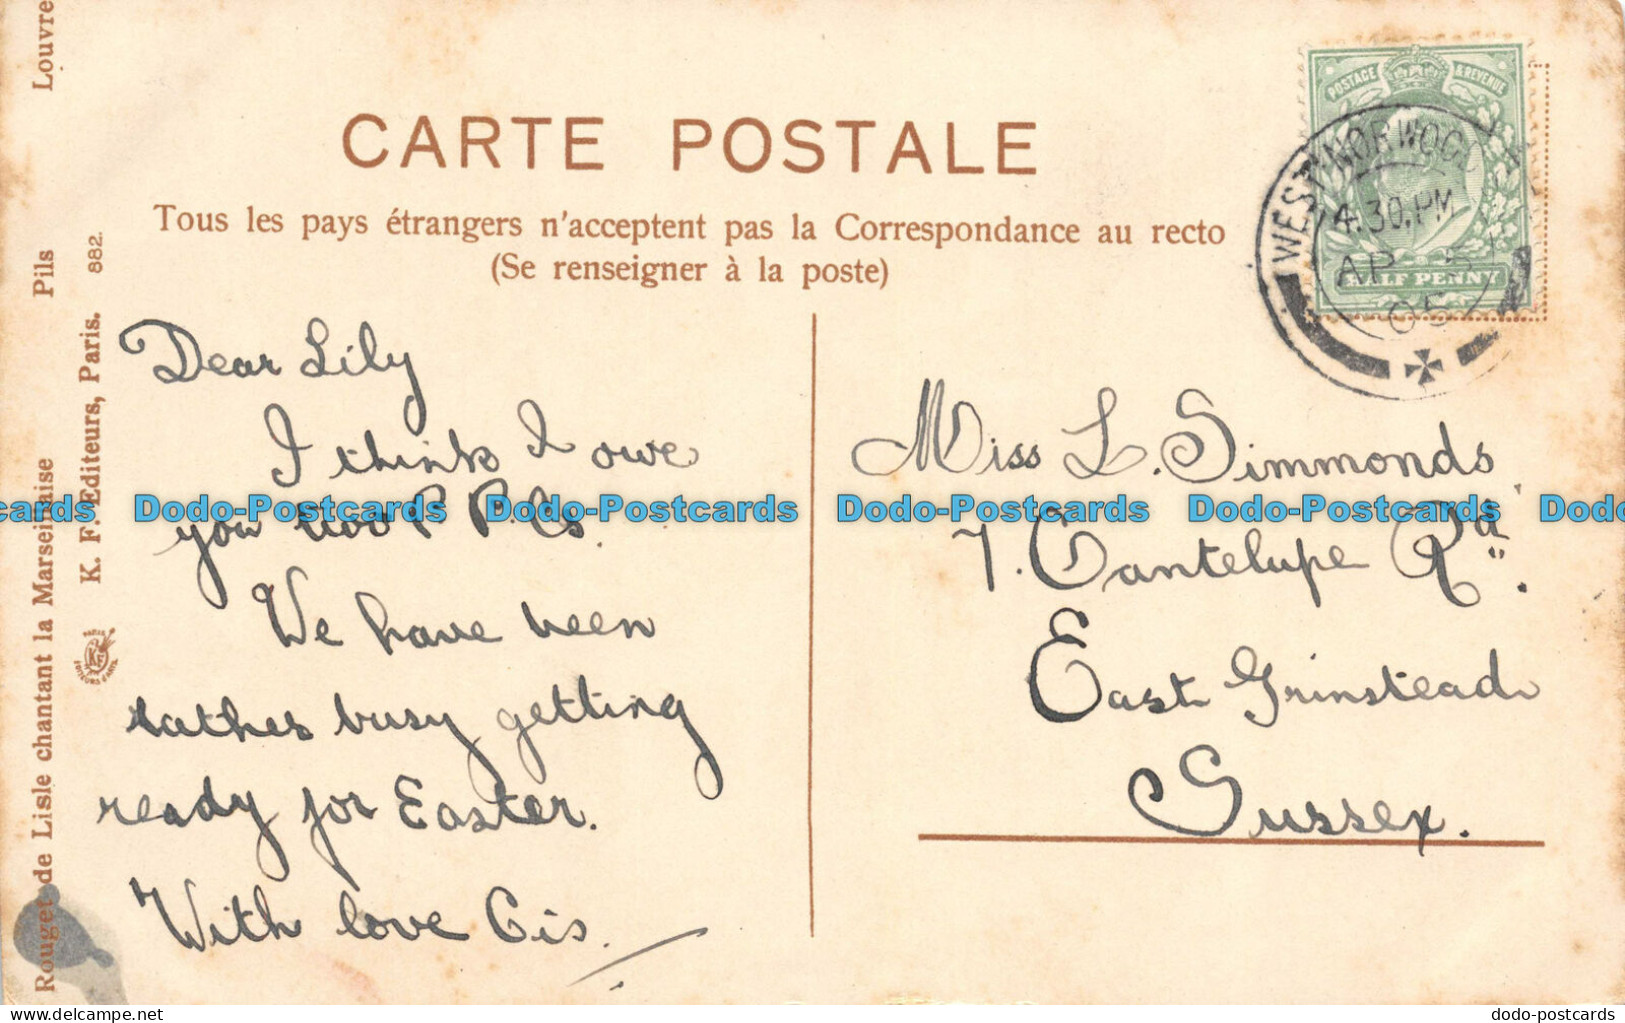 Louvre
Pils
Rouget de Lisle chantant la Marseillaise
882.
K. F. Editeurs, Paris.
CARTE POSTALE
Tous les pays étrangers n'acceptent pas la Correspondance au recto
(Se renseigner à la poste)
POSTAGE & REVENUE
HALF PENNY
WEST NORWOOD
4.30.PM
AP 5
05
Dear Lily
I think I owe
you two P P.Cs.
We have been
rather busy getting
ready for Easter.
With love Cis.
Miss L. Simmonds
7. Cantelupe Rd.
East Grinstead
Sussex.
Dodo-Postcards Dodo-Postcards Dodo-Postcards Dodo-Postcards
delcampe.net
dodo-postcards